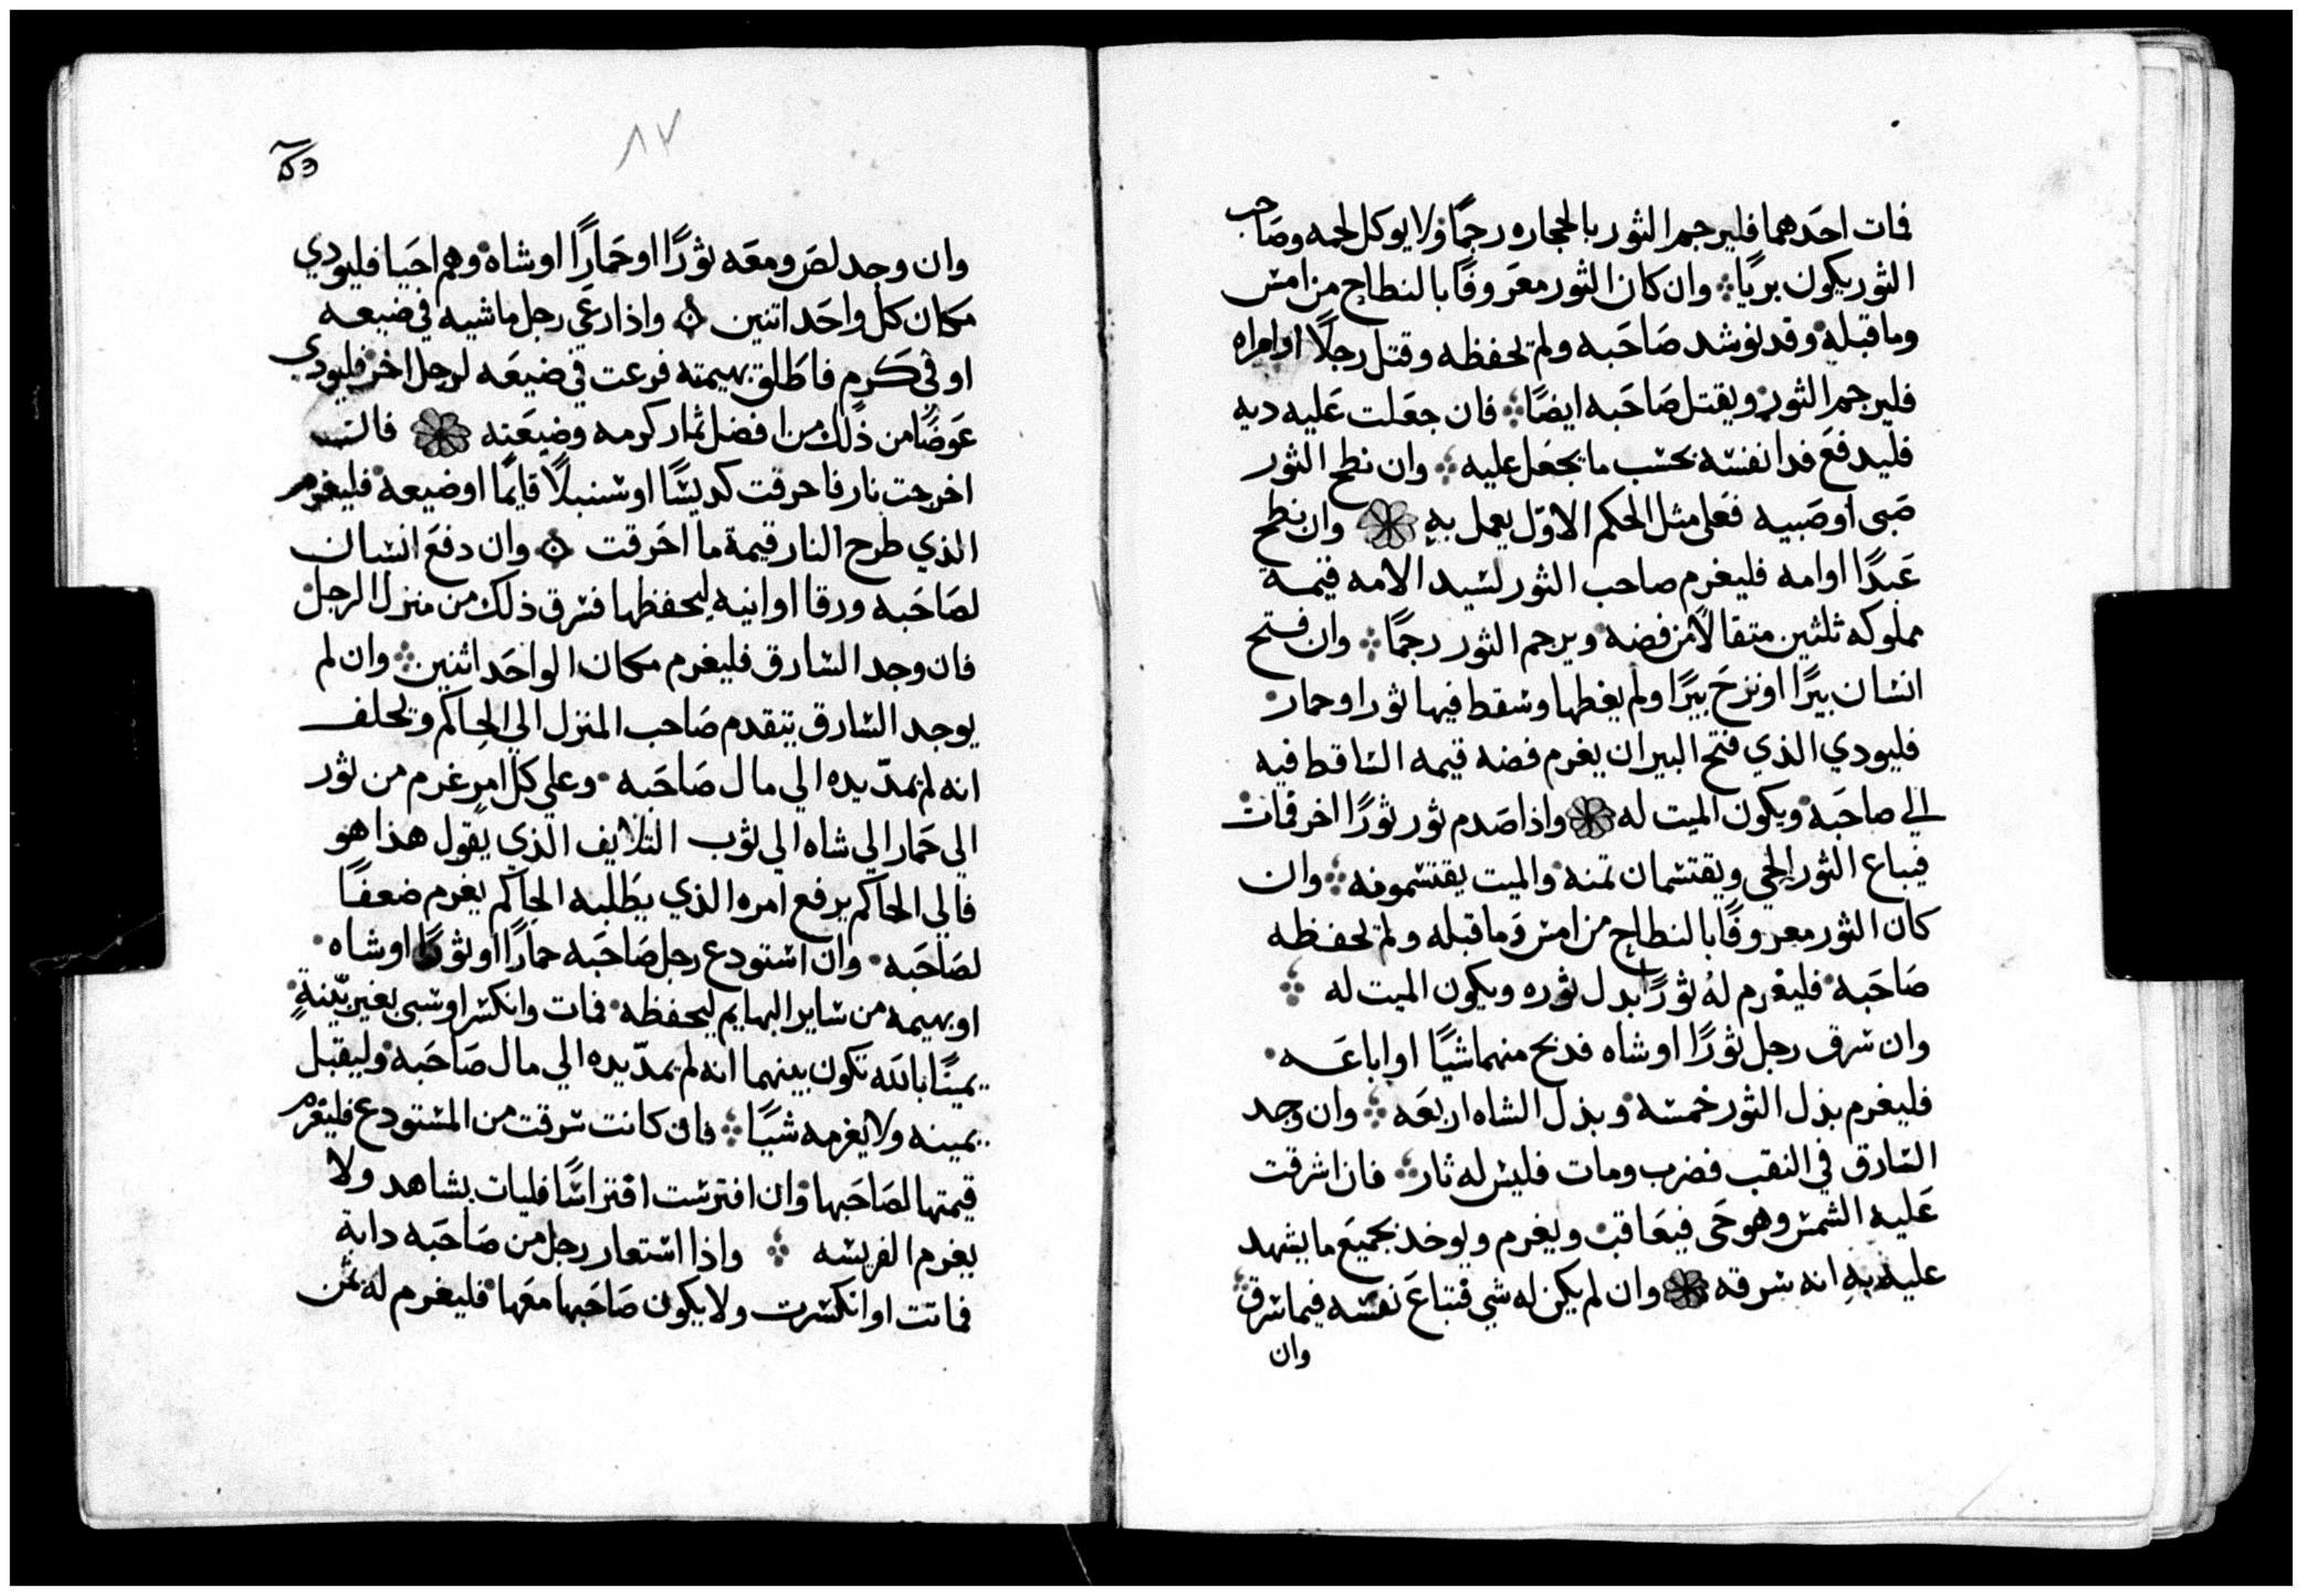 فمات احَدهما فليرجم الثور بالحجاره رجمًا ولا يوكل لحمه وصَاحب
الثور يكون بريًا وان كان الثور معَروفًا بالنطاح من امس
وما قبله وقد نوشد صَاحَبه ولم يحفظه وقتل رجلًا او امراه
فليرجم الثور ويقتل صَاحَبه ايضًا فان جعَلت عَليه ديه
فليدفعَ فدا نفسه بحسب ما يجعَل عليه وان نطح الثور
صَبى او صَبيه فعَلى مثل الحكم الاوّل يعمل بهِ وان نطح
عَبدًا او امه فليغرم صاحب الثور لسيد الامه قيمة
مملوكه ثلثين مثقالًا من فضه ويرجم الثور رجمًا وان فتح
انسان بيرًا او نزحَ بيرًا ولم يغطها وسقط فيها ثور او حمار
فليودي الذي فتح البير ان يغرم فضه قيمه الساقط فيه
الي صاحَبه ويكون الميت له واذا صَدم ثور ثورًا اخر فمات
فيباع الثور الحي ويقتسمان تمنه والميت يقتسمونه وان
كان الثور معروفًا بالنطاح من امس وَما قبله ولم يحفظه
صَاحَبه فليغرم لهُ ثورًا بدل ثوره ويكون الميت له
وان سرق رجل ثورًا او شاه فدبح منهما شيًا او اباعَـه
فليغرم بذل الثور خمسه وبذل الشاه اربعَه وان وجد
السارق في النقب فضرب ومات فليس له ثار فان اشرقت
عَليه الشمس وهو حَى فيعَاقب ويغرم ويوخد بجميعَ ما يشهد
عليه بهِ انه سرقه وان لم يكن له شي فتباعَ نفسه فيما سرق
وان
٨٧
وان وجد لصَ ومعَه ثورًا او حَمارًا او شاه وهم احَيا فليودي
مكان كل واحَد اتنين واذا رعَي رجل ماشيه في ضيعـه
او في كَرم فاطَلق بهيمته فرعت في ضيعَه لرجل اخر فليودي
عَوضًا من ذلك من افضل ثمار كرمه وضيعَته فان
اخرجت نار فاحرقت كديسًا او سنبلًا قايمًا او ضيعه فليغرم
الذي طرح النار قيمة ما احَرقت وان دفعَ انسان
لصَاحَبه ورقا او انيه ليحفظها فسرق ذلك من منزل الرجل
فان وجد السارق فليغرم مكان الواحَد اثنين وان لم
يوجد السارق يتقدم صَاحب المنزل الي الحاكم ويحلف
انه لم يمدّ يده الي مال صَاحَبه وعلي كل امرٍ غرم من ثور
الي حَمار الي شاه الي ثوب التلايف الذي يقول هذا هو
فالي الحاكم يرفع امره الذي يطَلبه الحاكم يغرم ضعفًا
لصَاحَبه وان استودع رجل صَاحَبه حمارًا او ثورًا او شاه
او بهيمه من ساير البهايم ليحفظه فمات وانكسر او سبى بغير بيّنةٍ
يمينًا بالله تكون بينهما انه لم يمدّ يده الي مال صَاحَبه وليقبل
يمينه ولا يغرمه شيًا فان كانت سرقت من المستودع فليغرم
قيمتها لصَاحَبها وان افترست افتراسًا فليات بشاهد ولا
يغرم الفريسه واذا استعار رجل من صَاحَبه دابة
فماتت او انكسرت ولا يكون صَاحَبها معَها فليغرم له ثمن